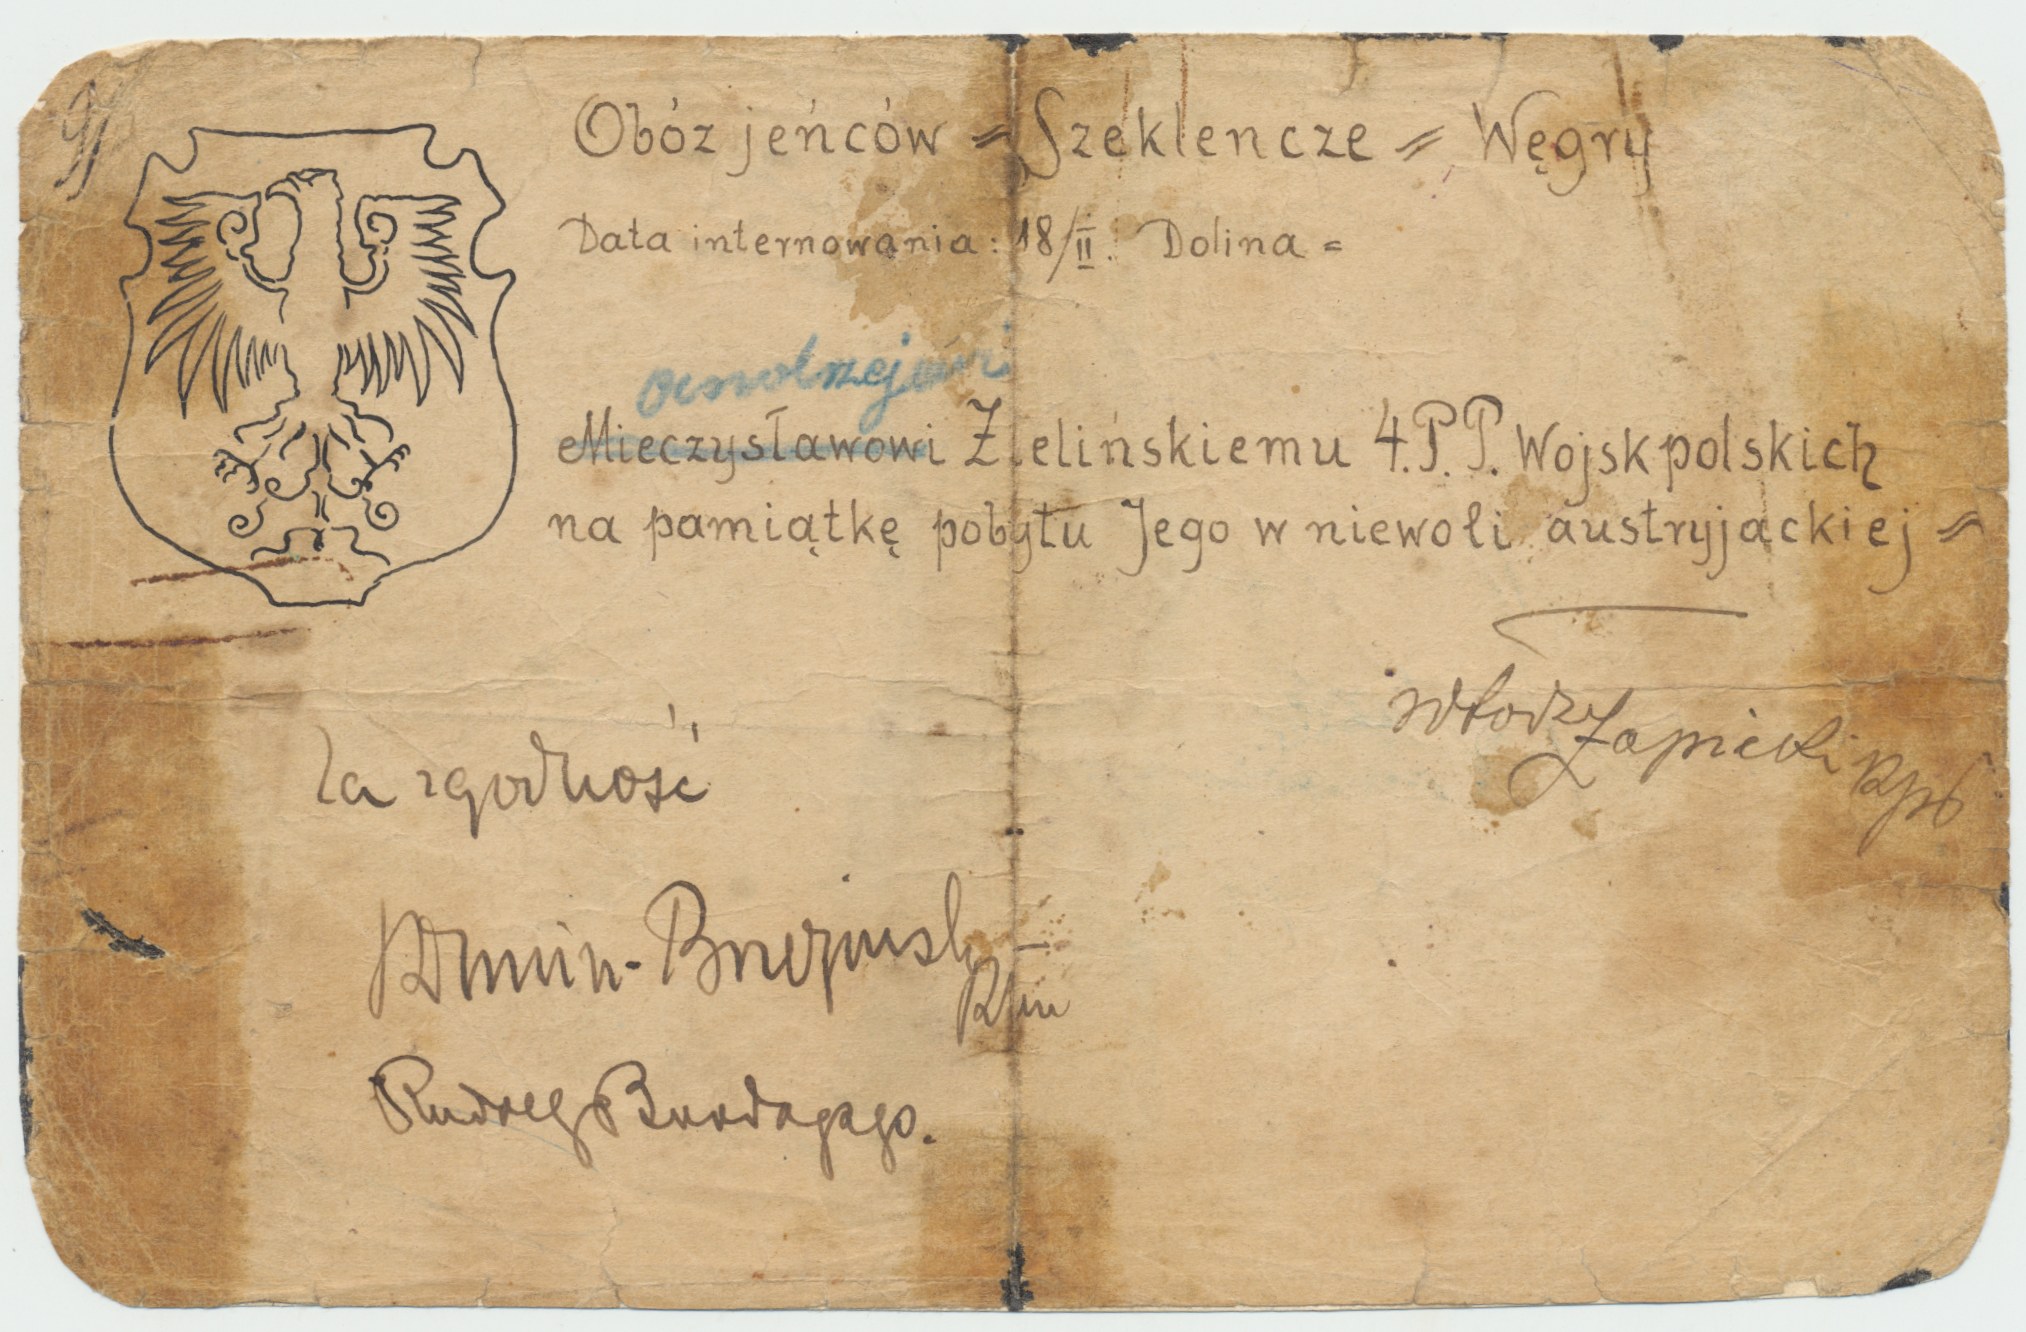 Obóz jeńców = Szeklencze = Węgry
Data internowania: 18/II. Dolina =
Mieczysławowi Zielińskiemu 4. P. P. Wojsk polskich
na pamiątkę pobytu Jego w niewoli austryjackiej =
Włodz Łapicki
Za zgodność
Rudolf